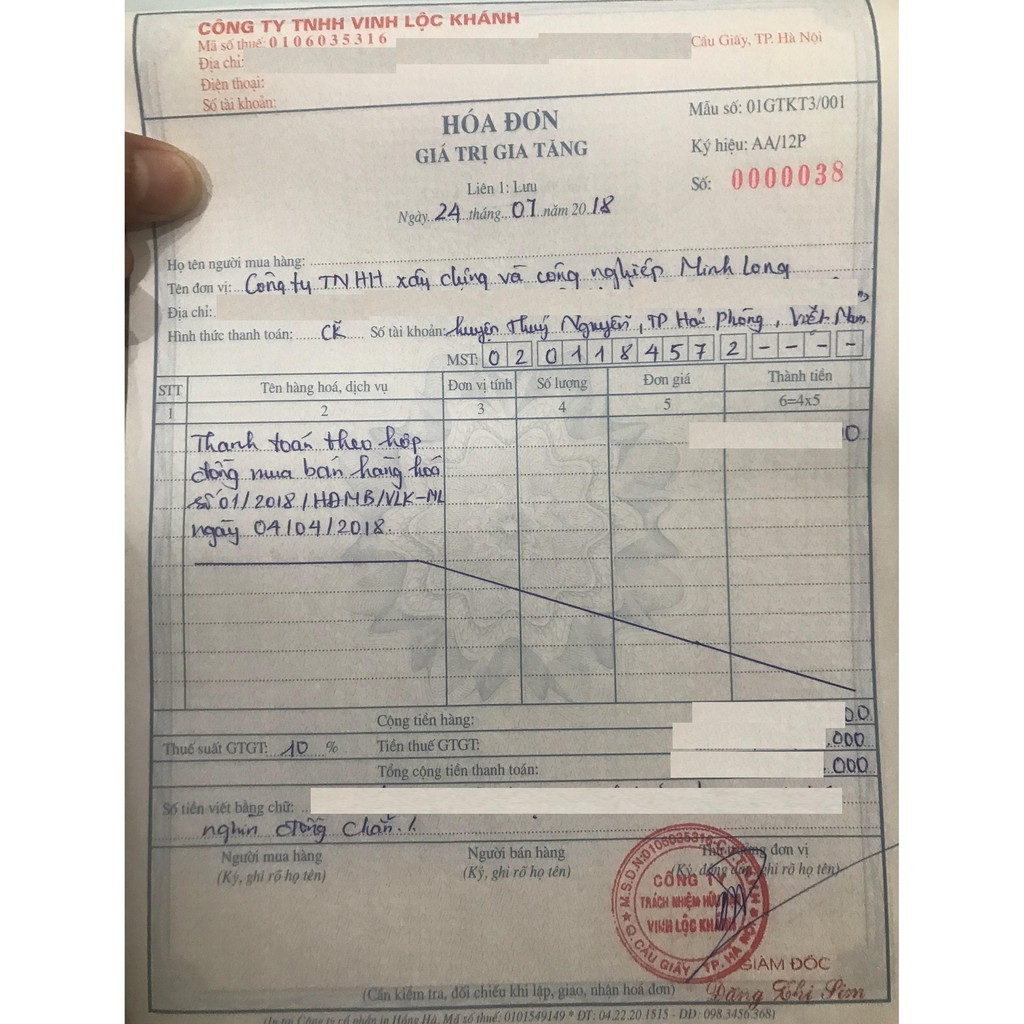 CÔNG TY TNHH VINH LỘC KHÁNH
Mã số thuế: 0106035316
Địa chỉ: Cầu Giấy, TP. Hà Nội
Điện thoại:
Số tài khoản:
HÓA ĐƠN
GIÁ TRỊ GIA TĂNG
Mẫu số: 01GTKT3/001
Ký hiệu: AA/12P
Số: 0000038
Liên 1: Lưu
Ngày 24 tháng 07 năm 2018
Họ tên người mua hàng:
Tên đơn vị: Công ty TNHH xây dựng và công nghiệp Minh Long
Địa chỉ:
Hình thức thanh toán: CK Số tài khoản: huyện Thuỷ Nguyên, TP Hải Phòng, Việt Nam
MST: 0 2 0 1 1 8 4 5 7 2 - - - -
STT Tên hàng hoá, dịch vụ Đơn vị tính Số lượng Đơn giá Thành tiền
1 2 3 4 5 6=4x5
Thanh toán theo hợp 0
đồng mua bán hàng hoá
số 01/2018/HĐMB/VLK-ML
ngày 04/04/2018
Cộng tiền hàng: 00
Thuế suất GTGT: 10 % Tiền thuế GTGT: .000
Tổng cộng tiền thanh toán: .000
Số tiền viết bằng chữ:
nghìn đồng chẵn./.
Người mua hàng Người bán hàng Thủ trưởng đơn vị
(Ký, ghi rõ họ tên) (Ký, ghi rõ họ tên) (Ký, đóng dấu, ghi rõ họ tên)
M.S.D.N:0106035316-C.T.T.N.H.H
CÔNG TY
TRÁCH NHIỆM HỮU HẠN
VINH LỘC KHÁNH
Q.CẦU GIẤY - TP.HÀ NỘI
GIÁM ĐỐC
Đặng Thị Sim
(Cần kiểm tra, đối chiếu khi lập, giao, nhận hoá đơn)
(In tại Công ty cổ phần in Hồng Hà, Mã số thuế: 0101549149 * ĐT: 04.22.20.1515 - DĐ: 098.3456.368)